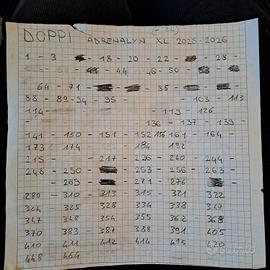 (-24)
DOPPI ADRENALYN XL 2025-2026
1 - 3 - 18 - 20 - 22 - 28 -
44 - 46 - 50
64 - 71 - 85 -
88 - 89 - 94 - 95 - 103 - 113
114 - 119 - 126 -
136 - 137 - 139 -
141 - 150 - 151 - 152 161 - 164 -
173 - 174 184 - 192
215 - 217 - 226 - 240 - 244 -
248 - 250 - 253 - 256 - 263 -
269 - 271 - 276
280 - 310 - 313 - 315 - 321 - 322
324 - 325 - 328 334 - 338
347 - 348 - 354 - 355 - 362 - 368
370 - 383 - 387 - 388 - 391 - 405
410 - 411 - 412 - 414 - 415 - 420
448 - 464